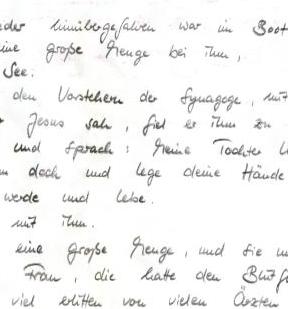 hinübergefahren war im Boot
große Menge bei ihm,
See.
den Vorstehern der Synagoge, mit
Jesus sah, fiel er ihm zu
und sprach: Meine Tochter
doch und lege deine Hände
werde und lebe.
mit ihm.
eine große Menge, und sie
Frau, die hatte den
viel erlitten von vielen Ärzten